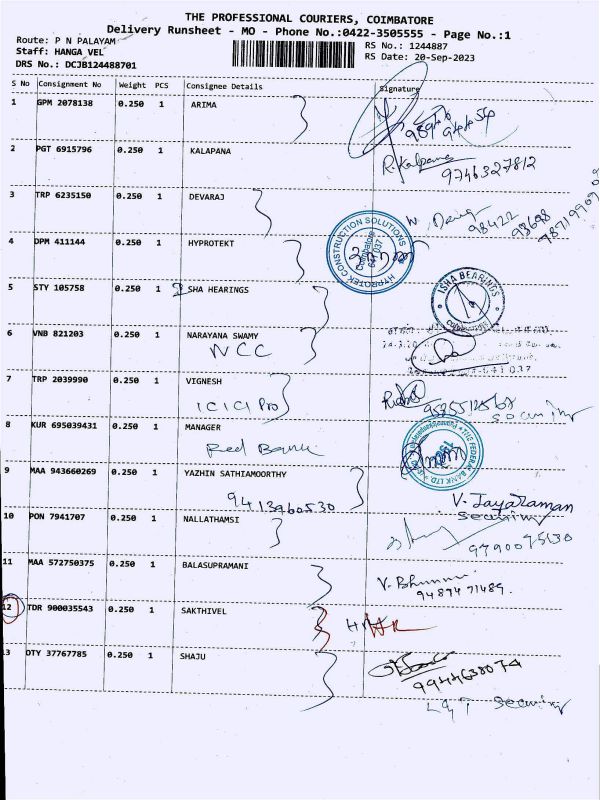 THE PROFESSIONAL COURIERS, COIMBATORE
Delivery Runsheet - MO - Phone No.:0422-3505555 - Page No.:1
Route: P N PALAYAM
Staff: HANGA_VEL
DRS No.: DCJB124488701
RS No.: 1244887
RS Date: 20-Sep-2023
S No Consignment No Weight PCS Consignee Details Signature
1 GPM 2078138 0.250 1 ARIMA
2 PGT 6915796 0.250 1 KALAPANA R. Kalpana 9746327812
3 TRP 6235150 0.250 1 DEVARAJ 98422 93698
4 DPM 411144 0.250 1 HYPROTEKT
HYPROTEK CONSTRUCTION SOLUTIONS
Coimbatore
641 037
5 STY 105758 0.250 1 SHA HEARINGS
ISHA BEARINGS
6 VNB 821203 0.250 1 NARAYANA SWAMY
NCC
7 TRP 2039990 0.250 1 VIGNESH
ICICI Pro
8 KUR 695039431 0.250 1 MANAGER
Fed Bank
THE FEDERAL BANK LTD.
9 MAA 943660269 0.250 1 YAZHIN SATHIAMOORTHY
9413960530 V. Jayaraman
security
10 PON 7941707 0.250 1 NALLATHAMSI
11 MAA 572750375 0.250 1 BALASUPRAMANI 9487471489.
12 TDR 900035543 0.250 1 SAKTHIVEL
13 DTY 37767785 0.250 1 SHAJU
9944638074